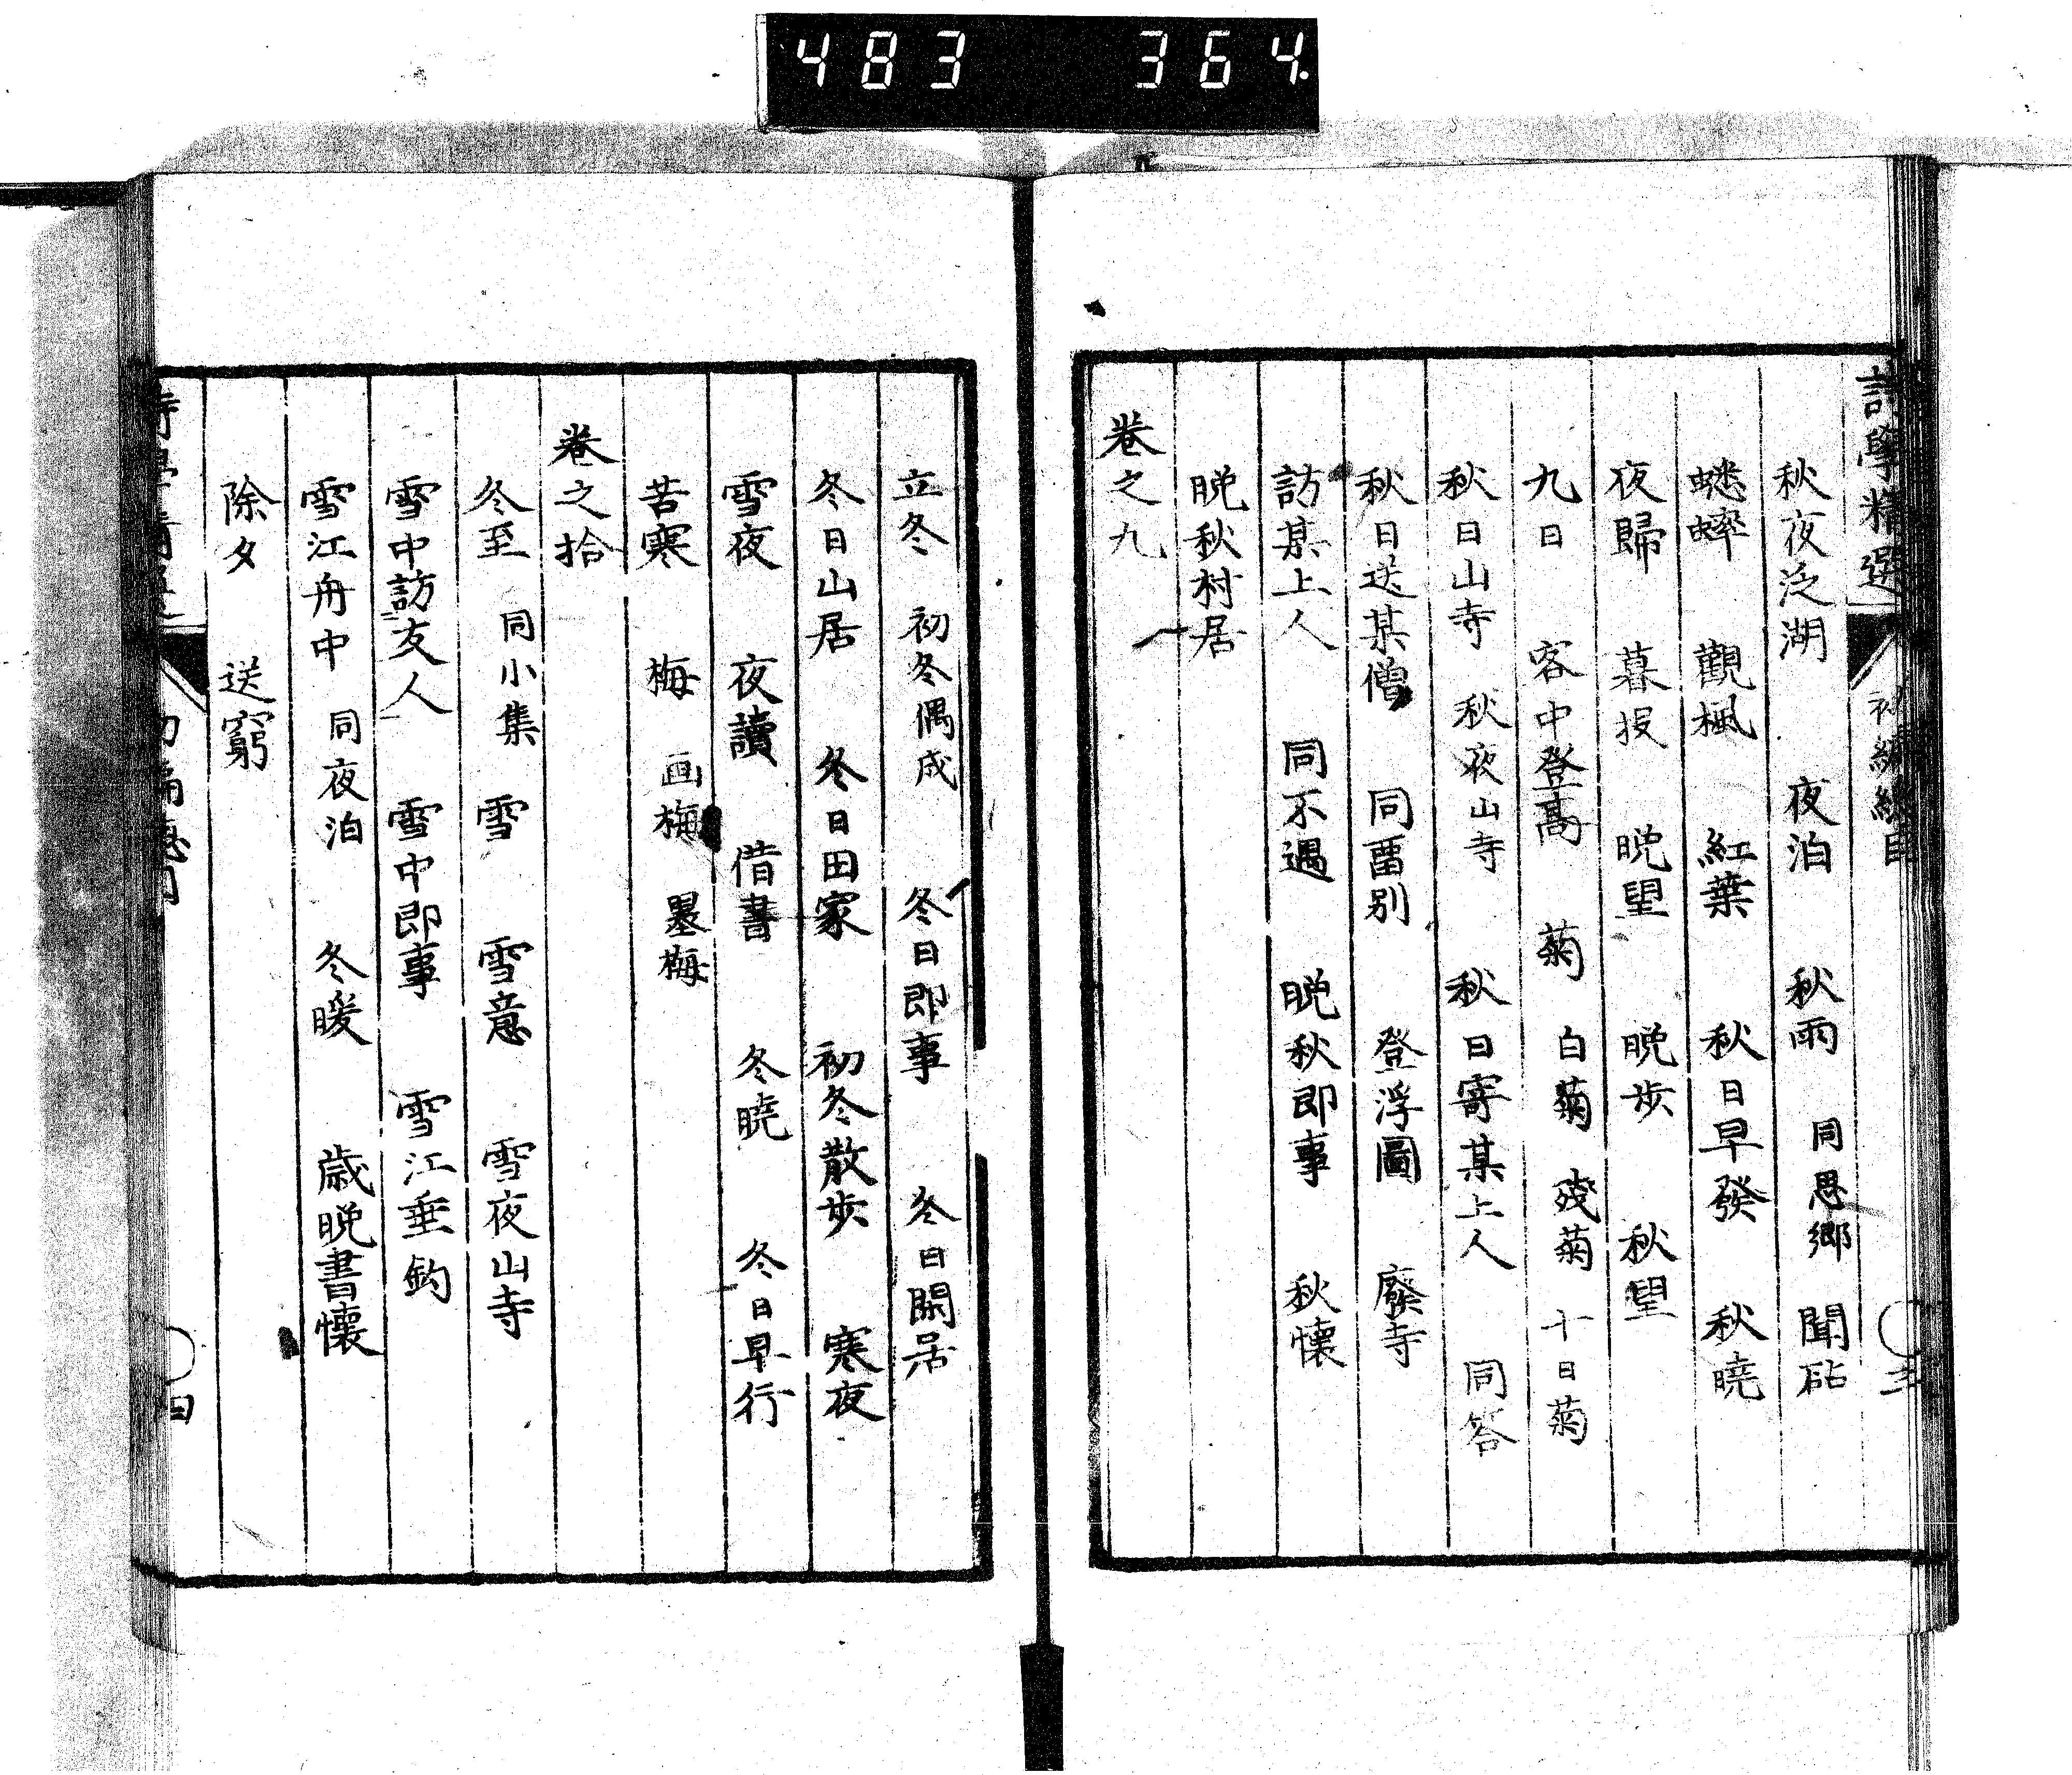 483 364.
詩學精選 初編總目 三
秋夜泛湖 夜泊 秋雨 同思鄉 聞砧
蟋蟀 觀楓 紅葉 秋日早發 秋曉
夜歸 暮投 晩望 晩步 秋望
九日 客中登髙 菊 白菊 殘菊 十日菊
秋日山寺 秋夜山寺 秋日寄某上人 同答
秋日送某僧 同畱別 登浮圖 廢寺
訪某上人 同不遇 晩秋即事 秋懷
晩秋村居
卷之九
立冬 初冬偶成 冬日即事 冬日閑居
冬日山居 冬日田家 初冬散步 寒夜
雪夜 夜讀 借書 冬曉 冬日早行
苦寒 梅 画梅 墨梅
卷之拾
冬至 同小集 雪 雪意 雪夜山寺
雪中訪友人 雪中即事 雪江垂釣
雪江舟中 同夜泊 冬暖 歳晩書懷
除夕 送窮